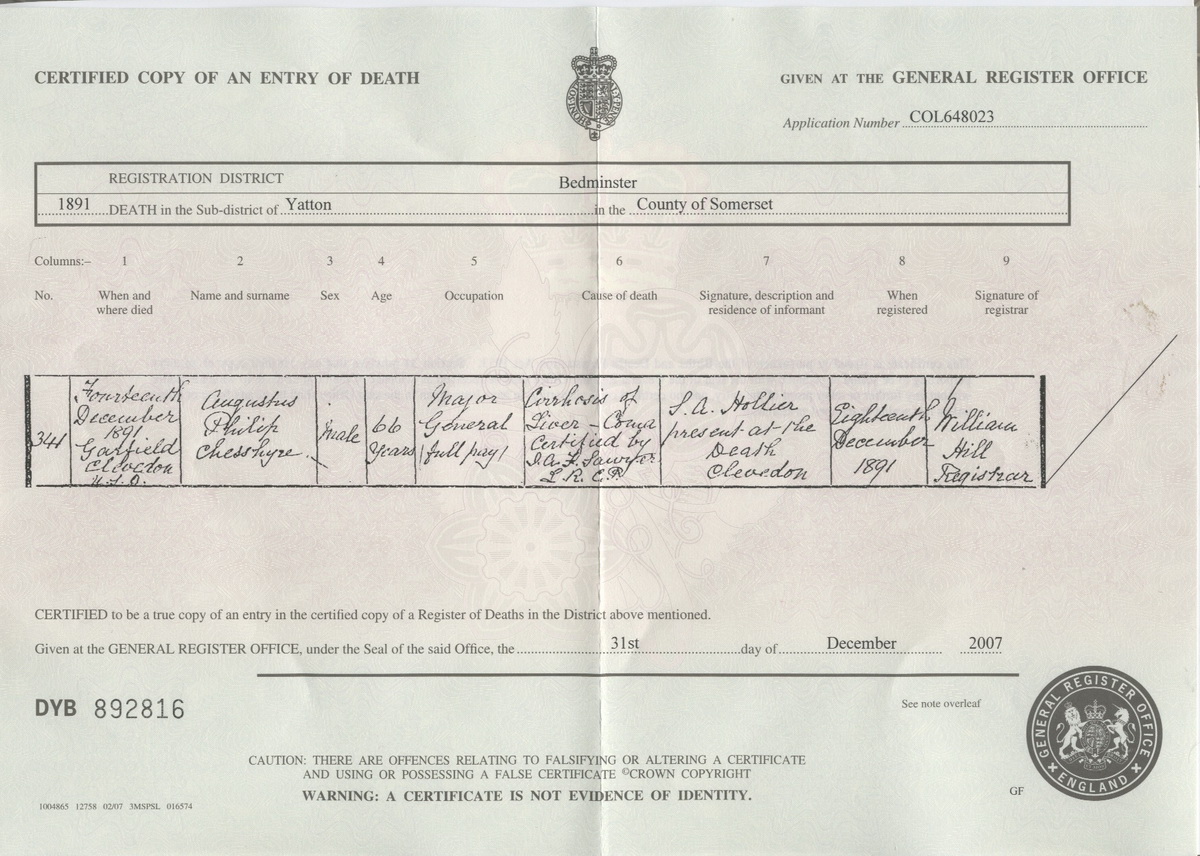 CERTIFIED COPY OF AN ENTRY OF DEATH
GIVEN AT THE GENERAL REGISTER OFFICE
Application Number COL648023
REGISTRATION DISTRICT Bedminster
1891 DEATH in the Sub-district of Yatton in the County of Somerset
Columns:– 1 2 3 4 5 6 7 8 9
No. When and where died Name and surname Sex Age Occupation Cause of death Signature, description and residence of informant When registered Signature of registrar
341
Fourteenth
December
1891
Garfield
Clevedon
U.S.D.
Augustus
Philip
Chesshyre
Male
66
Years
Major
General
(full pay)
Cirrhosis of
Liver – Coma
Certified by
Sawyer
L.R.C.P.
S. A. Hollier
present at the
Death
Clevedon
Eighteenth
December
1891
William
Hill
Registrar
CERTIFIED to be a true copy of an entry in the certified copy of a Register of Deaths in the District above mentioned.
Given at the GENERAL REGISTER OFFICE, under the Seal of the said Office, the 31st day of December 2007
DYB 892816
See note overleaf
GENERAL REGISTER OFFICE
ENGLAND
CAUTION: THERE ARE OFFENCES RELATING TO FALSIFYING OR ALTERING A CERTIFICATE
AND USING OR POSSESSING A FALSE CERTIFICATE ©CROWN COPYRIGHT
WARNING: A CERTIFICATE IS NOT EVIDENCE OF IDENTITY.
1004865 12758 02/07 3MSPSL 016574
GF